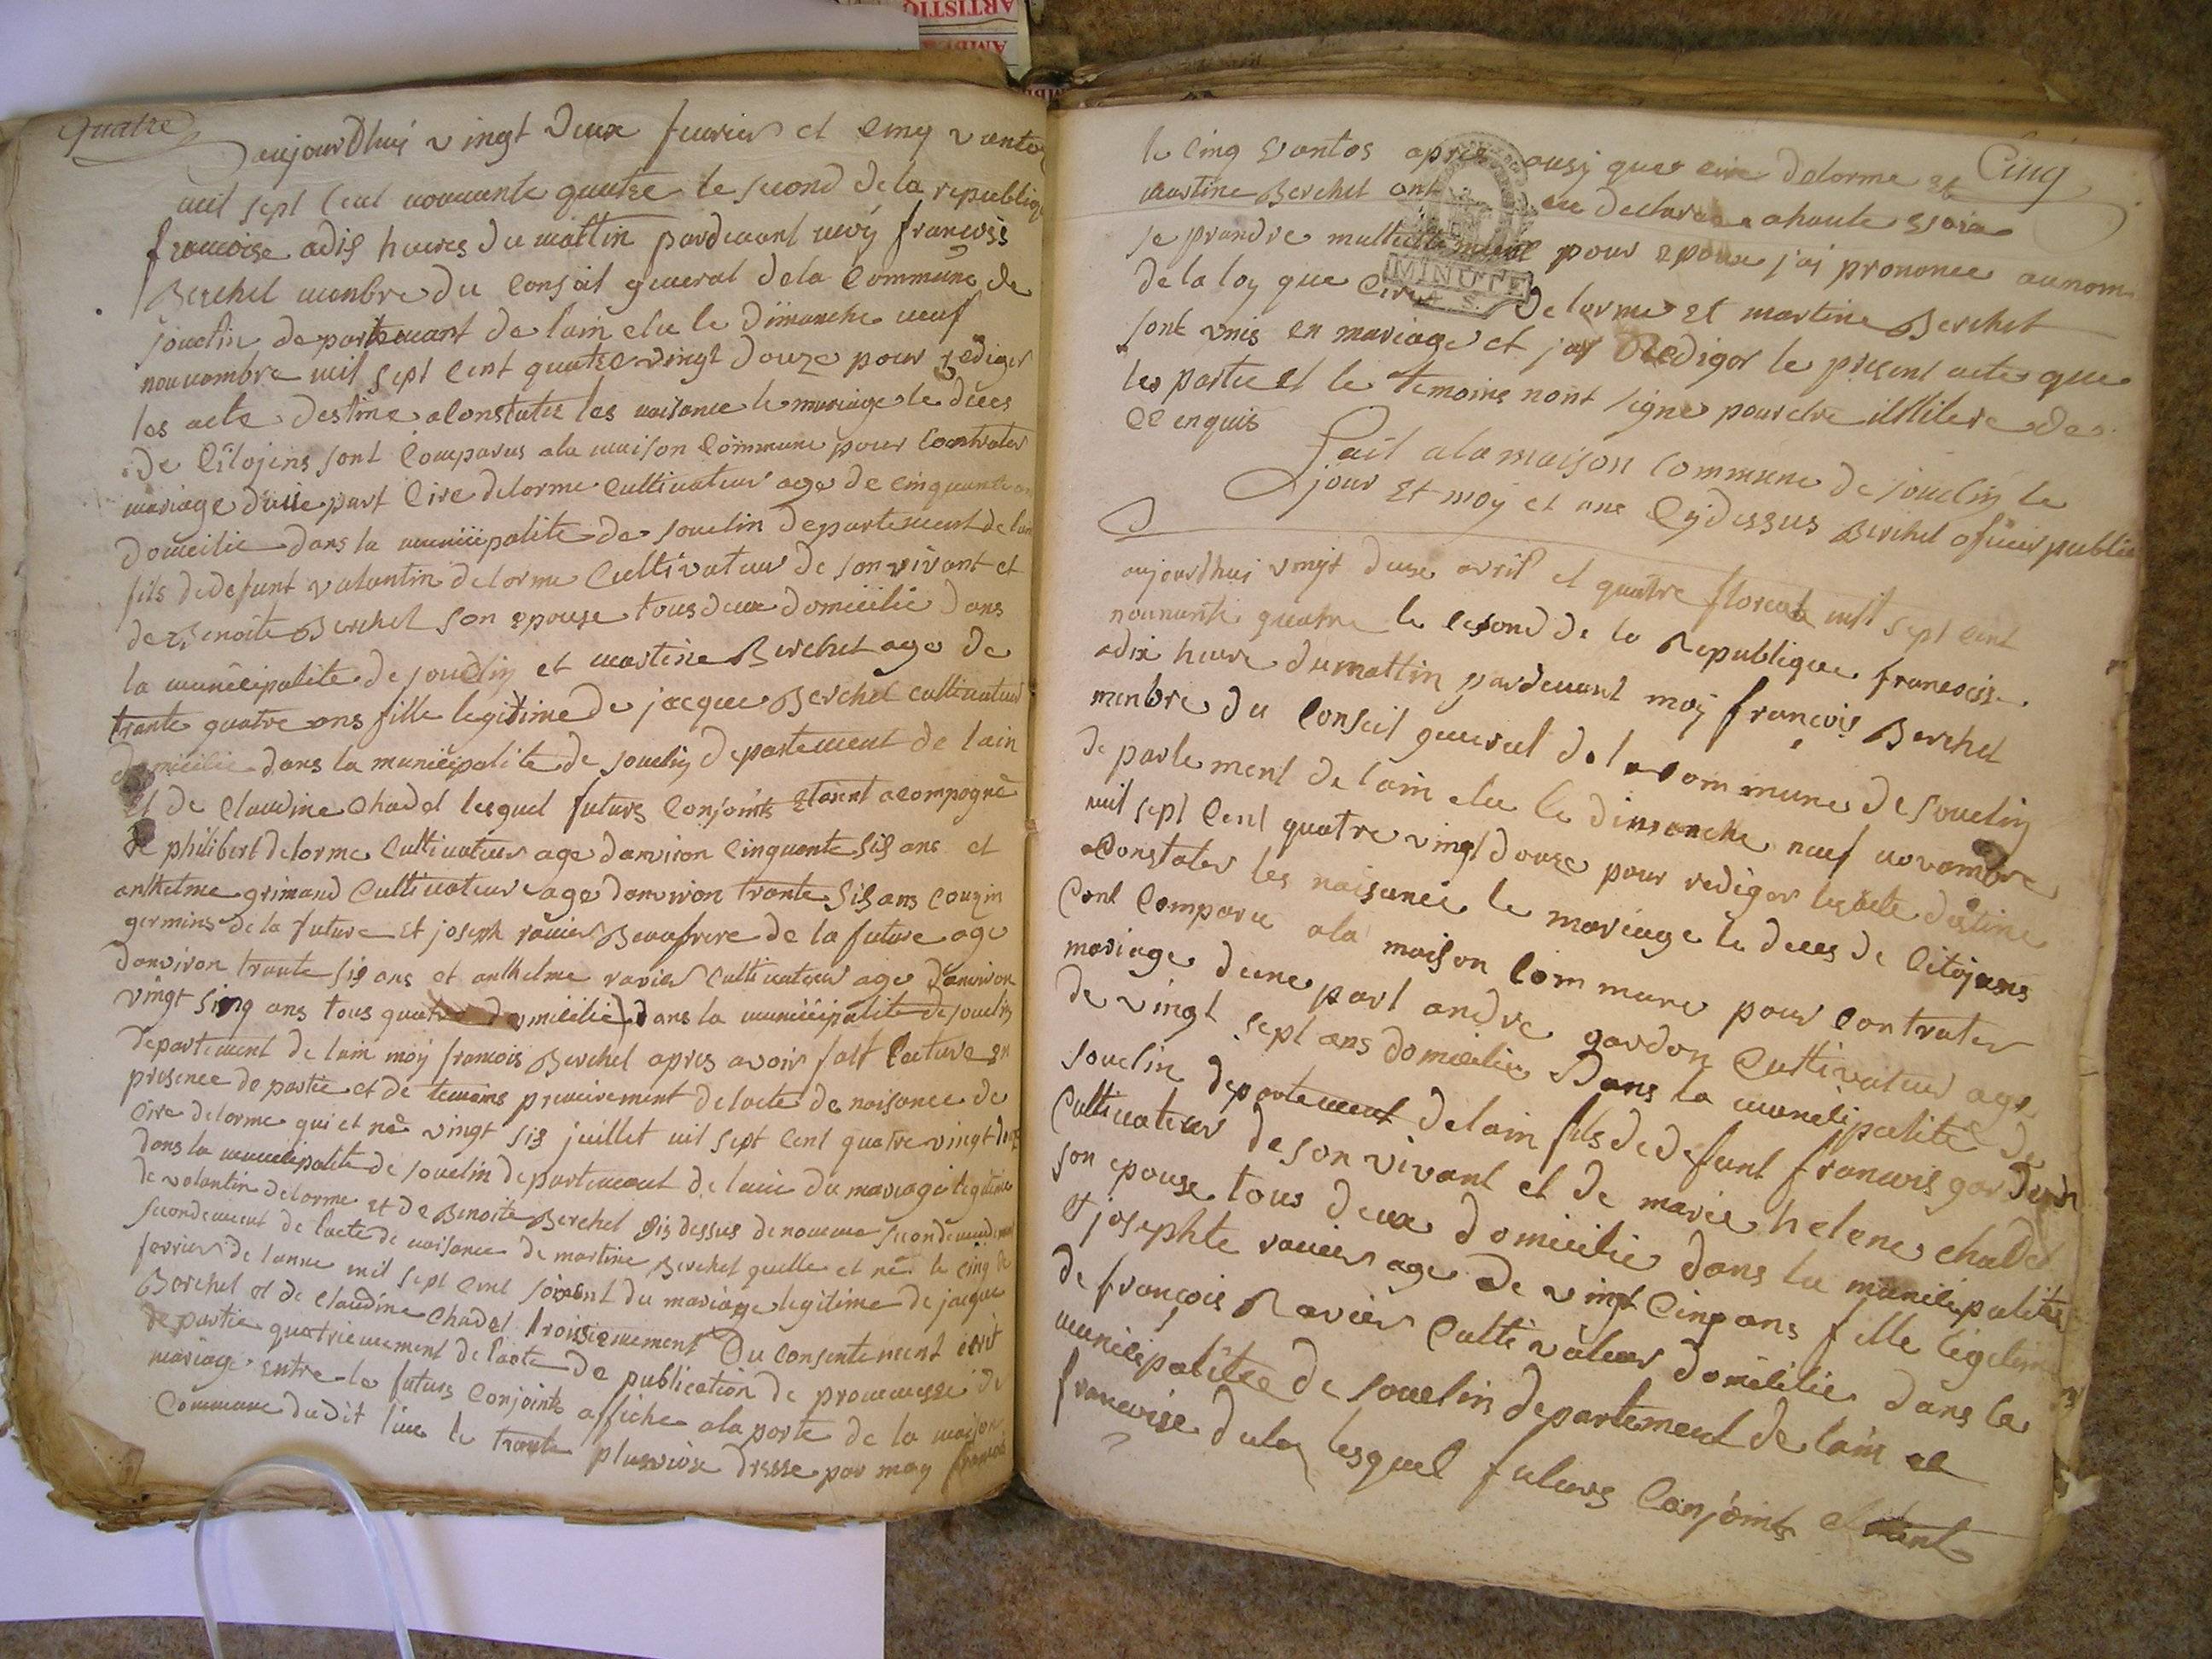 ARTISTIQ
AMBI
quatre
aujourdhuy vingt deux fevrier et cinq vento
mil sept cent nonante quatre le second de la republiq
francoise a dis heures du mattin pardevant moy francois
Berchet menbre du consail general de la commune de
souclin departemant de lain elu le dimanche neuf
nouvambre mil sept cent quatre vingt douze pour rediger
les acte destine a constater les naisance le mariage le deces
de citojens sont comparus a la maison commune pour contrater
mariage dune part cire delorme cultivateur age de cinquante an
domcilie dans la municipalite de souclin departement de lain
fils de defunt valantin delorme cultivateur de son vivant et
de Benoite Berchet son epouse tous deux domicilie dans
la municipalite de souclin et martine Berchet age de
trante quatre ans fille legitime de jacque Berchet cultivateur
domicilie dans la municipalite de souclin departement de lain
et de claudine chadel lesquel futurs conjoints etant acompagne
de philibert delorme cultivateur age danviron cinquante sis ans et
anthelme grimand cultivateur age danviron trante sis ans couzin
germins de la future et joseph ravier Beaufrere de la future age
danviron trante sis ans et anthelme ravier cultivateur age danviron
vingt sinq ans tous quatre domicilie dans la municipalite de souclin
departement de lain moy francois Berchet apres avoir fait lecture en
presence de partie et de temoins premierement de lacte de naisance de
cire delorme qui et né vingt sis juillet mil sept cent quatre vingt
dans la municipalite de souclin departement de lain du mariage legitime
de valantin delorme et de Benoite Berchet sis dessus denomme
secondement de lacte de naisance de martine Berchet quelle et né le cinq de
fevrier de lanne mil sept cent soixant du mariage legitime de jacque
Berchet et de claudine chadel troisiemement Du consentement
de partie quatriemement de lacte de publication de promesse de
mariage entre le futurs conjoints affiche a la porte de la maison
commune du dit lieu le trante pluviose dresse par moy francois
Cinq
le cinq vantos apres ausy que cire delorme et
martine Berchet ont declare a haute voix
se prandre mutuellement pour epoux j'ai prononce au nom
MINUTE
de la loy que cire delorme et martine Berchet
sont unis en mariage et j'ay Redigor le present acte que
les partie et le temoins nont signe pour etre illitere de
ce enquis
Fait a la maison commune de souclin le
jour et moy et ans cydessus Berchet oficier public
aujourdhui vingt deuse avril et quatre floreale mil sept cent
nonante quatre le cesond de la Republique francoise
a dix heure du mattin pardevant moy francois Berchet
menbre du conseil general de la commune de souclin
departement de lain elu le dimanche neuf novambre
mil sept cent quatre vingt douze pour rediger les acte destine
a constater les naisance le mariage le deces de citojens
cont comparu a la maison commune pour contrater
mariage dune part andre gardon cultivateur age
de vingt sept ans domicilie Dans la municipalite de
souclin departement de lain fils de defunt francois gardon
cultivateur de son vivant et de marie helene chadel
son epouse tous deux domicilie dans la municipalite
et josephte ravier age de vingt cinq ans fille legitime
de francois Ravier cultivateur domicilie dans la
municipalite de souclin departement de lain et
francoise lesquel futurs conjoints etant